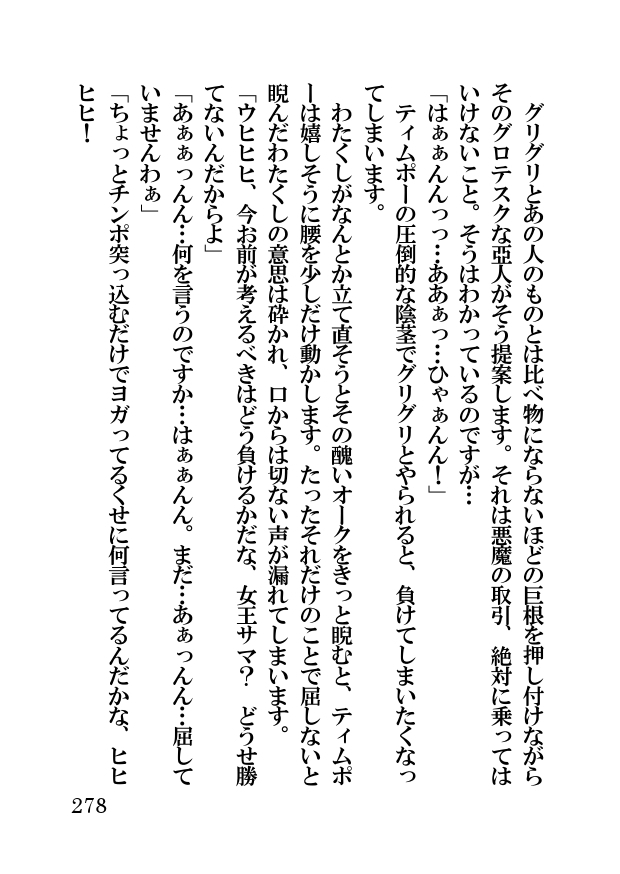 グリグリとあの人のものとは比べ物にならないほどの巨根を押し付けながら
そのグロテスクな亞人がそう提案します。それは悪魔の取引、絶対に乗っては
いけないこと。そうはわかっているのですが…
「はぁぁんんっっ…ああぁっ…ひゃぁんん！」
　ティムポーの圧倒的な陰茎でグリグリとやられると、負けてしまいたくなっ
てしまいます。
　わたくしがなんとか立て直そうとその醜いオークをきっと睨むと、ティムポ
ーは嬉しそうに腰を少しだけ動かします。たったそれだけのことで屈しないと
睨んだわたくしの意思は砕かれ、口からは切ない声が漏れてしまいます。
「ウヒヒヒ、今お前が考えるべきはどう負けるかだな、女王サマ？　どうせ勝
てないんだからよ」
「あぁぁっんん…何を言うのですか…はぁぁんん。まだ…あぁっんん…屈して
いませんわぁ」
「ちょっとチンポ突っ込むだけでヨガってるくせに何言ってるんだかな、ヒヒ
ヒヒ！
278